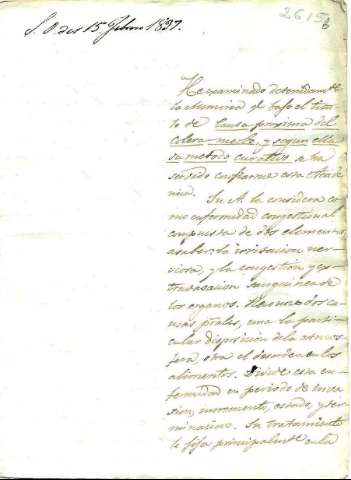 2615 b
S. P. del 15 Febro 1837.
He examinado detenidamte
la memoria q.e bajo el titu-
lo de Causa proxima del
Colera-morbo, y segun ella
su metodo curativo se ha
servido confiarme esta Acade
mia.
Su A. la considera co
mo enfermedad congestional
compuesta de dos elementos
a saber: la irritacion ner-
viosa, y la congestion y es-
travasacion sanguinea de
los organos. Reune dos ca
usas prales, una la parti-
cular disposicion de la atmos
fera, otra el desorden en los
alimentos. Divide esta en-
fermedad en periodo de inva
sion, incremento, estado, y ter
minacion. Su tratamiento
le fija principalmte en la